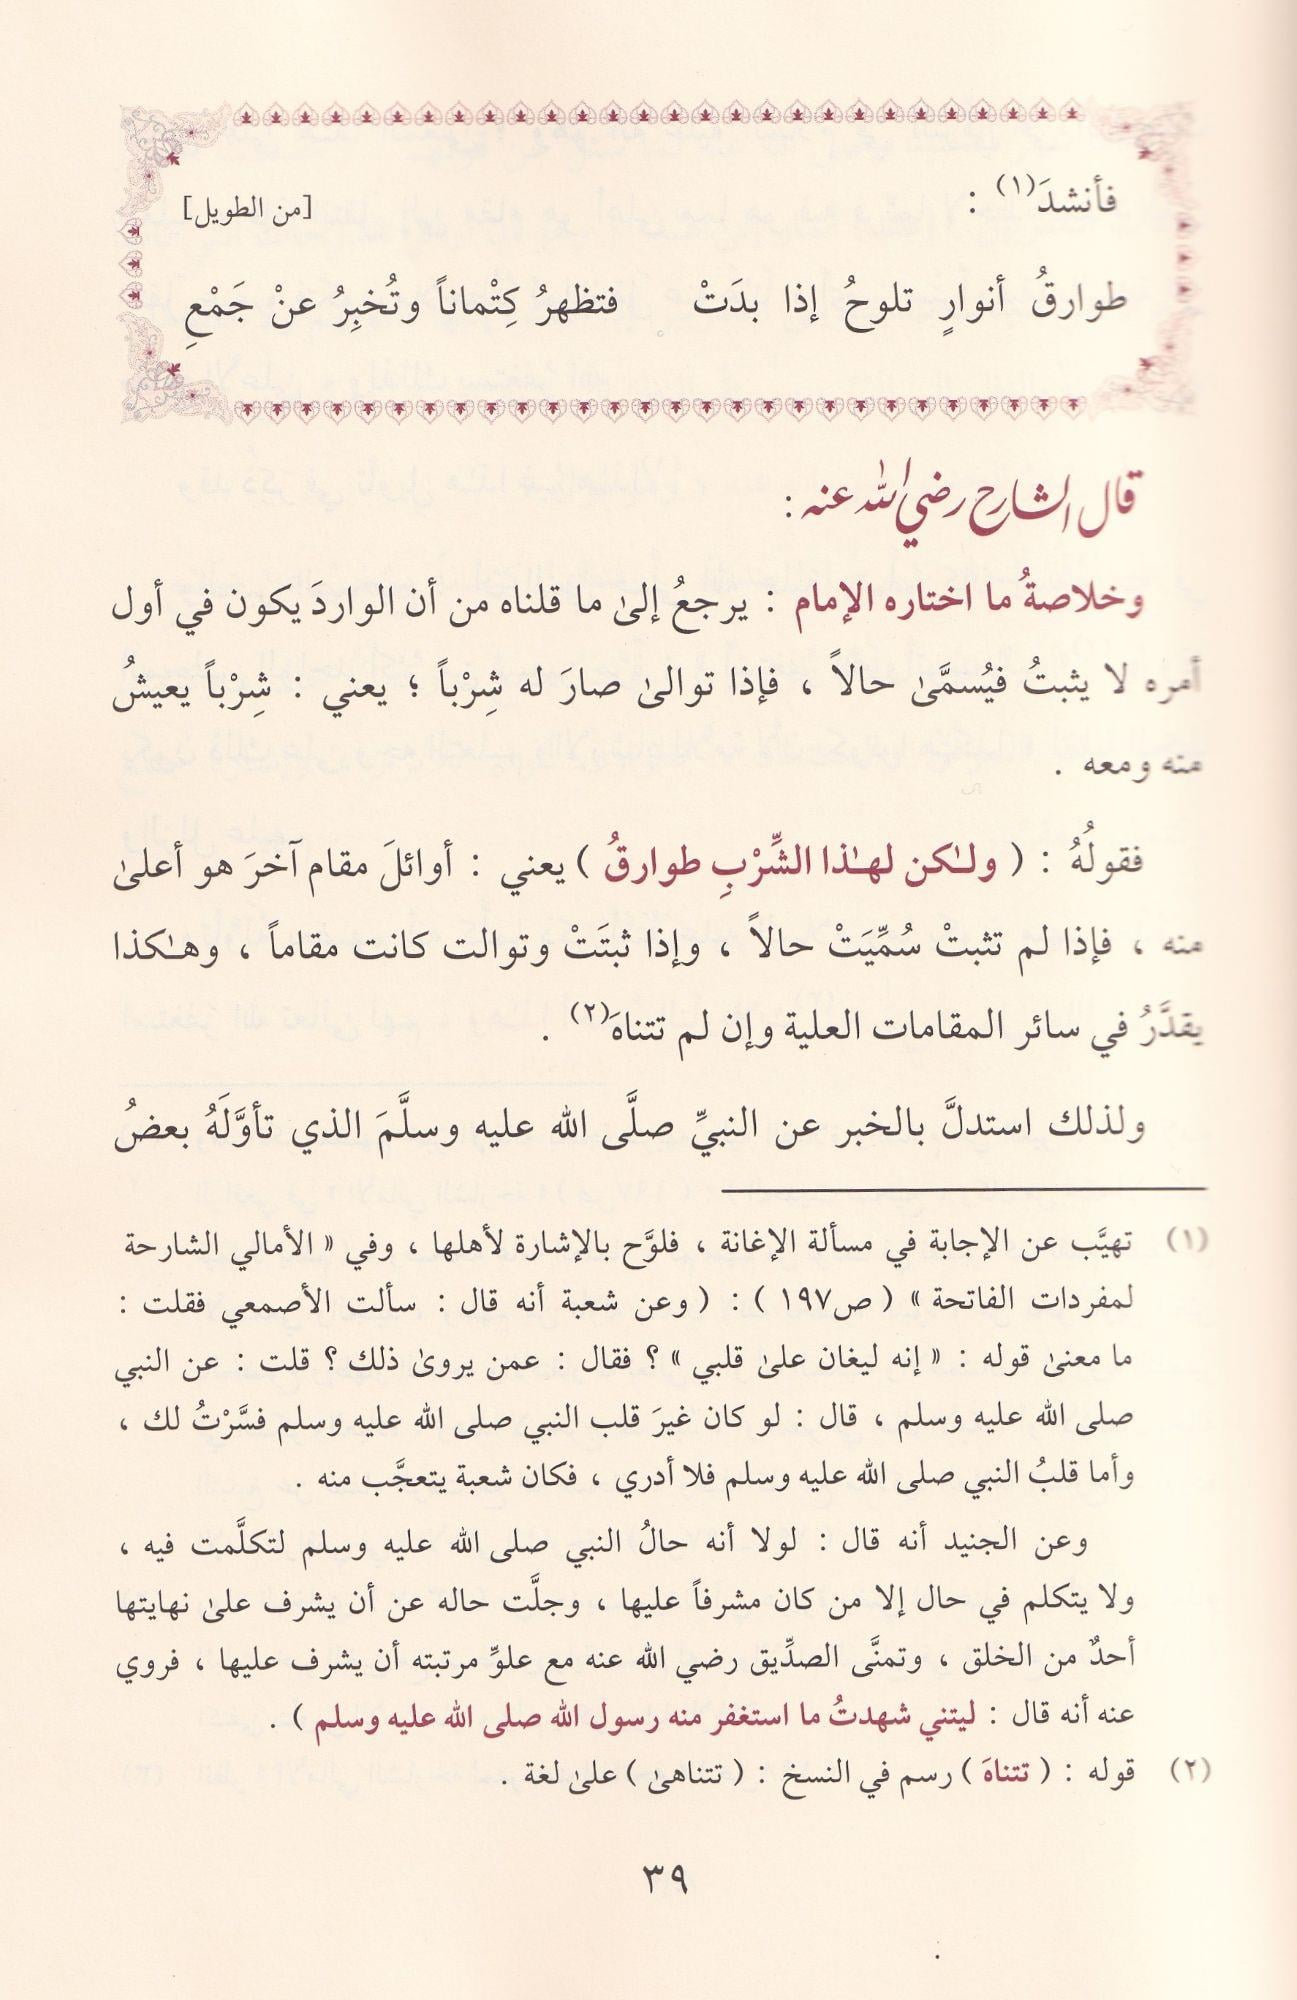 فأنشدَ(١) :
[من الطويل]
طوارقُ أنوارٍ تلوحُ إذا بدَتْ فتظهرُ كِتْماناً وتُخبِرُ عنْ جَمْعِ
قال الشارح رضي الله عنه :
وخلاصةُ ما اختاره الإمام : يرجعُ إلىٰ ما قلناه من أن الواردَ يكون في أول
أمره لا يثبتُ فيُسمَّىٰ حالاً ، فإذا توالىٰ صارَ له شِرْباً ؛ يعني : شِرْباً يعيشُ
منه ومعه .
فقولُهُ : ( ولـٰكن لهـٰذا الشِّرْبِ طوارقُ ) يعني : أوائلَ مقام آخرَ هو أعلىٰ
منه ، فإذا لم تثبتْ سُمِّيَتْ حالاً ، وإذا ثبتَتْ وتوالت كانت مقاماً ، وهـٰكذا
يقدَّرُ في سائر المقامات العلية وإن لم تتناهَ(٢) .
ولذلك استدلَّ بالخبر عن النبيِّ صلَّى الله عليه وسلَّمَ الذي تأوَّلَهُ بعضُ
(١) تهيَّب عن الإجابة في مسألة الإغانة ، فلوَّح بالإشارة لأهلها ، وفي « الأمالي الشارحة
لمفردات الفاتحة » ( ص١٩٧ ) : ( وعن شعبة أنه قال : سألت الأصمعي فقلت :
ما معنىٰ قوله : « إنه ليغان علىٰ قلبي » ؟ فقال : عمن يروىٰ ذلك ؟ قلت : عن النبي
صلى الله عليه وسلم ، قال : لو كان غيرَ قلب النبي صلى الله عليه وسلم فسَّرْتُ لك ،
وأما قلبُ النبي صلى الله عليه وسلم فلا أدري ، فكان شعبة يتعجَّب منه .
وعن الجنيد أنه قال : لولا أنه حالُ النبي صلى الله عليه وسلم لتكلَّمت فيه ،
ولا يتكلم في حال إلا من كان مشرفاً عليها ، وجلَّت حاله عن أن يشرف علىٰ نهايتها
أحدٌ من الخلق ، وتمنَّى الصدِّيق رضي الله عنه مع علوِّ مرتبته أن يشرف عليها ، فروي
عنه أنه قال : ليتني شهدتُ ما استغفر منه رسول الله صلى الله عليه وسلم ) .
(٢) قوله : ( تتناهَ ) رسم في النسخ : ( تتناهىٰ ) علىٰ لغة .
٣٩